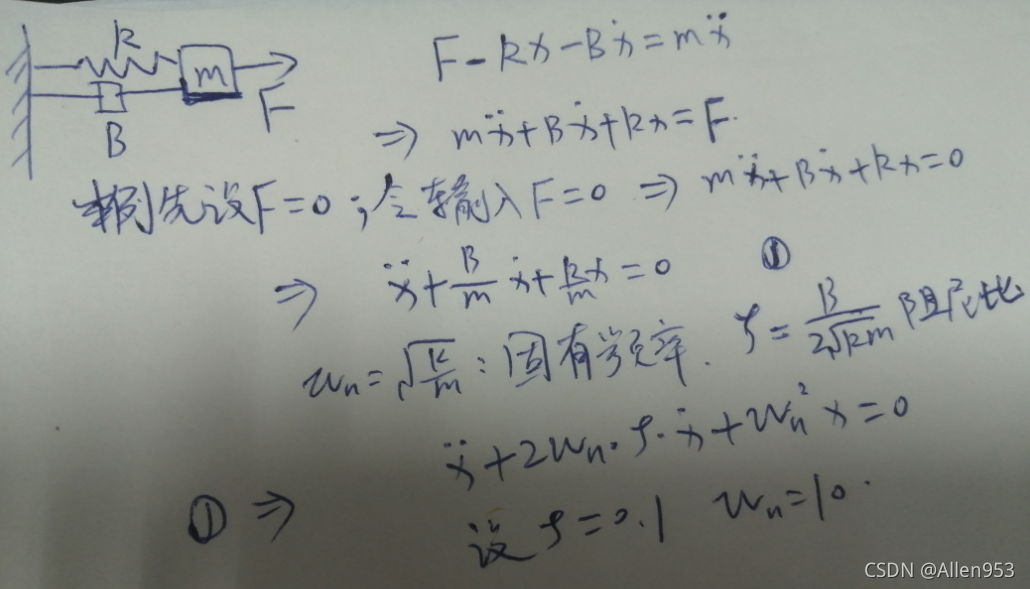 k
m
F
B
F - kx - Bẋ = mẍ
⇒ mẍ + Bẋ + kx = F.
先设F=0；令输入F=0 ⇒ mẍ + Bẋ + kx = 0
⇒ ẍ + B/m ẋ + k/m x = 0 ①
ωn = √(k/m)：固有频率. ζ = B/(2√(km)) 阻尼比
① ⇒ ẍ + 2ωn·ζ·ẋ + ωn² x = 0
设 ζ = 0.1 ωn = 10.
CSDN @Allen953